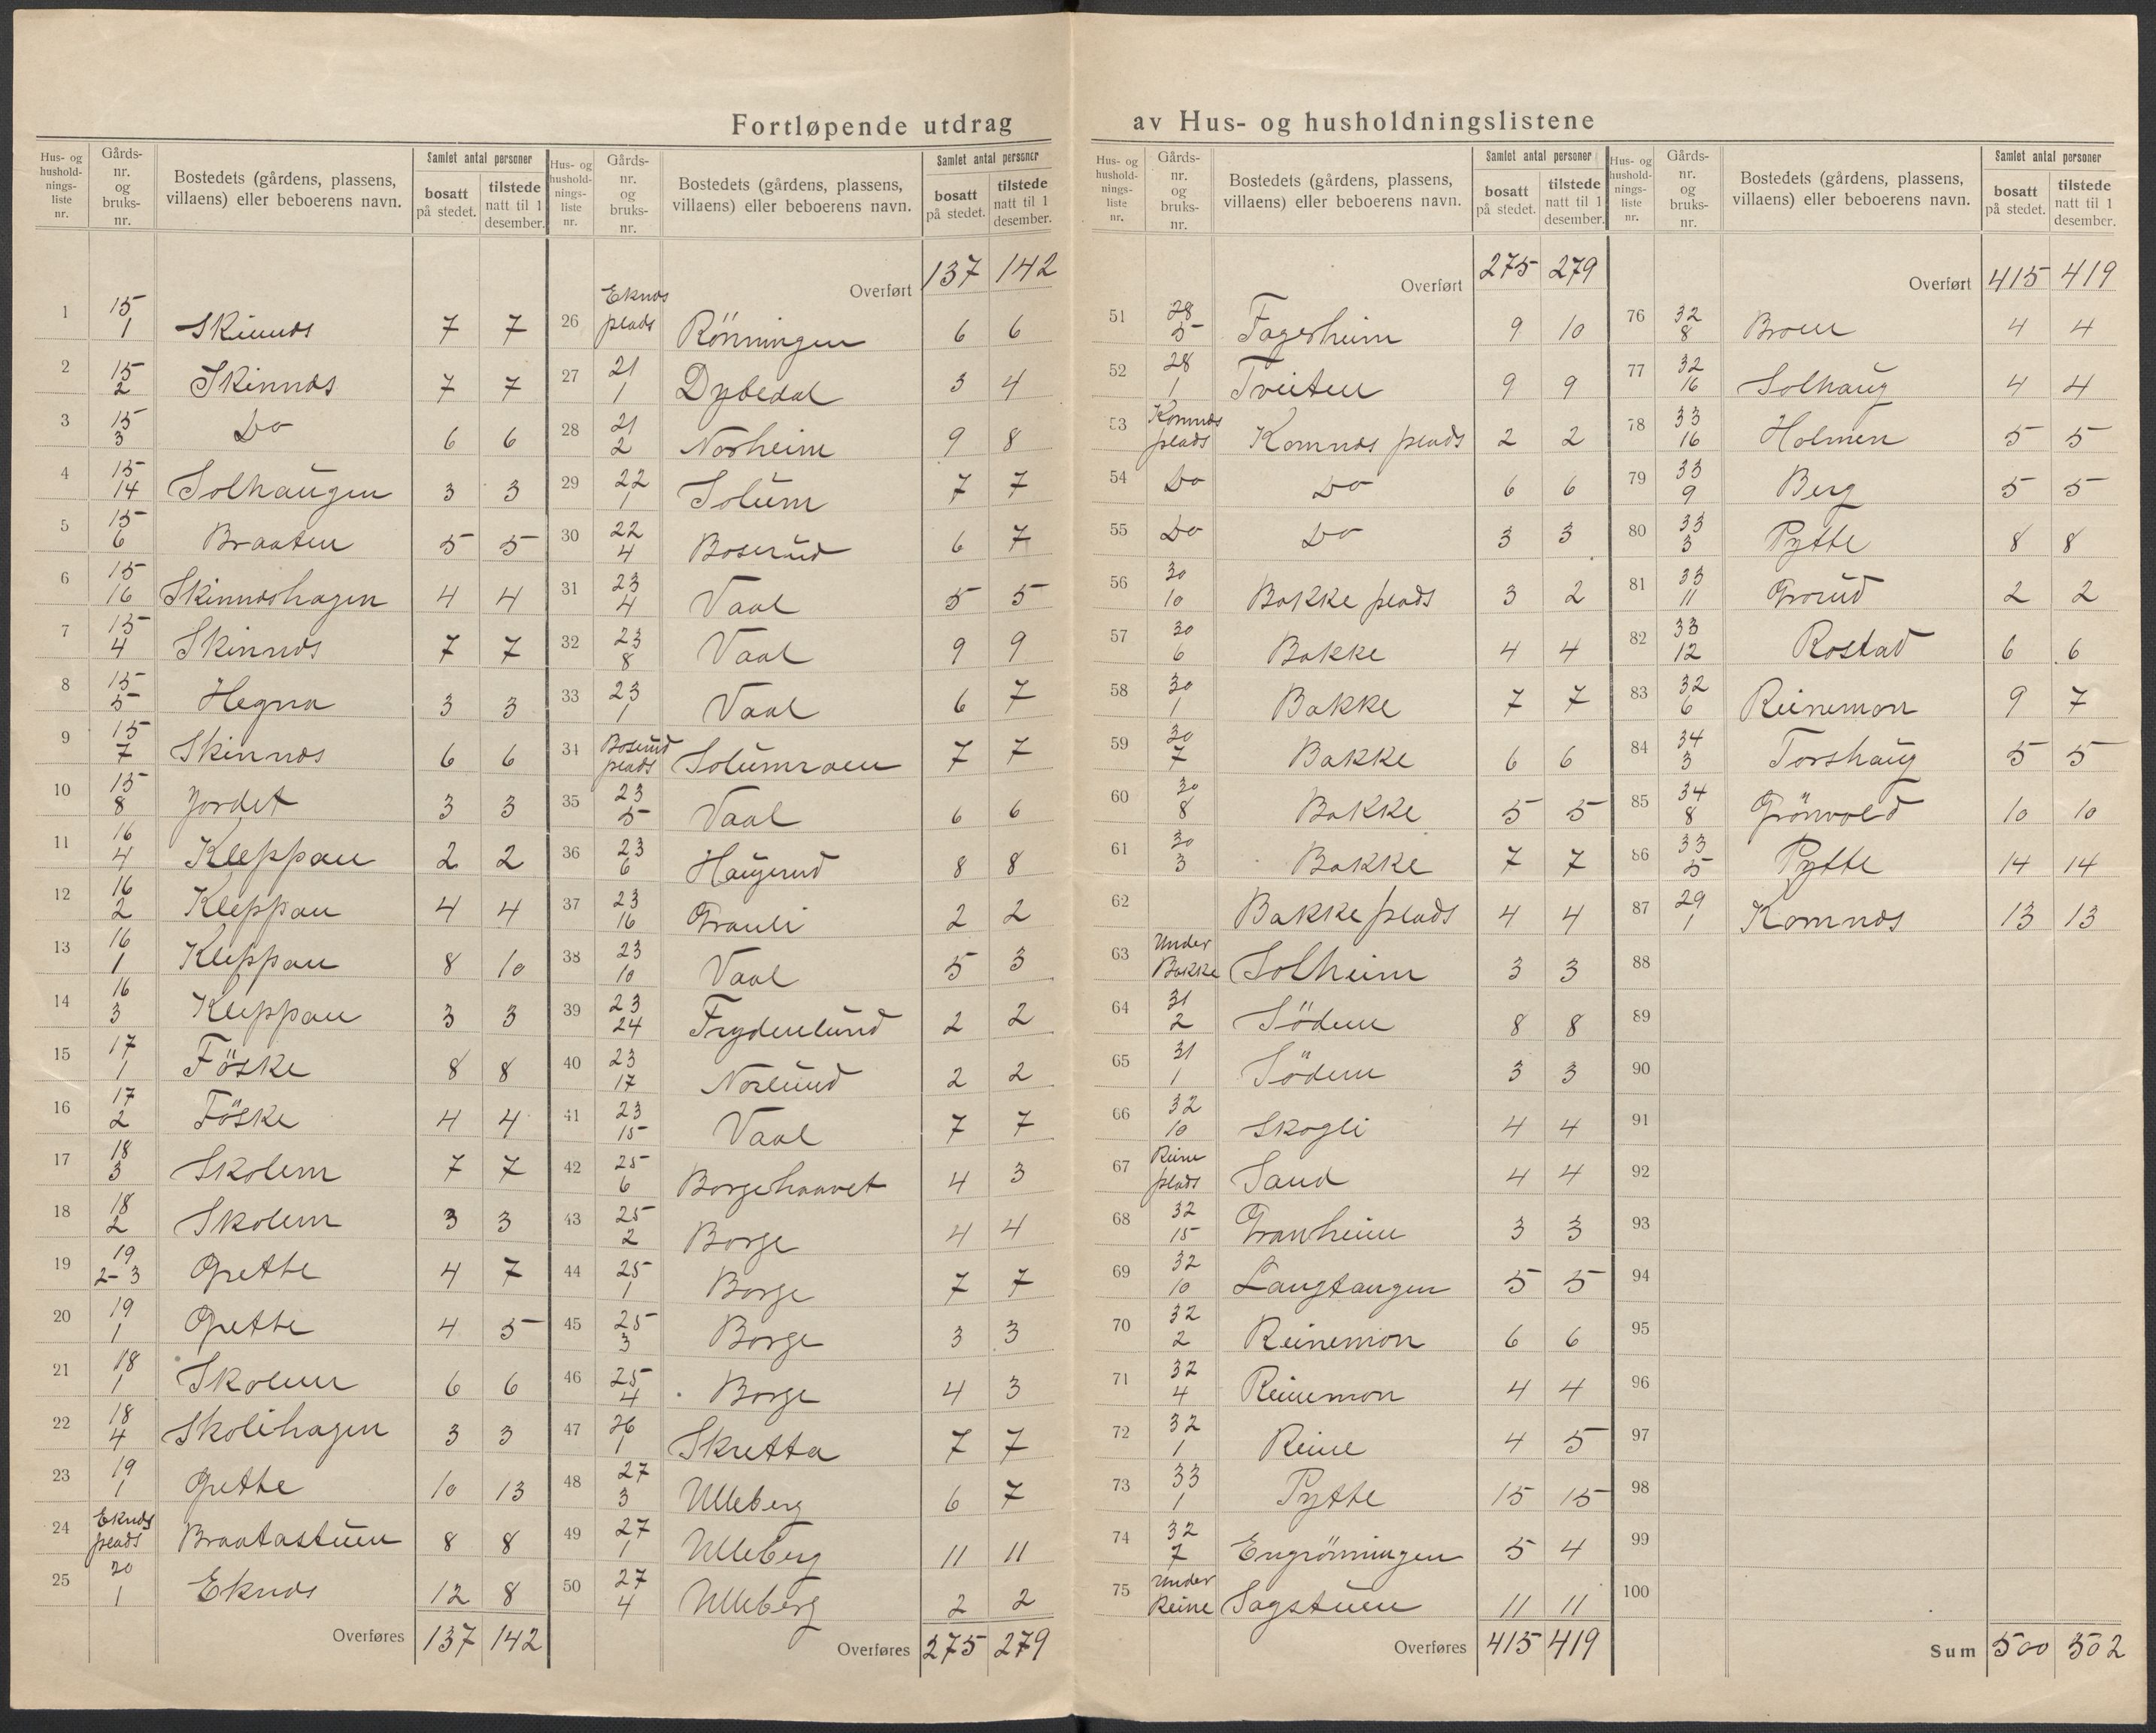 Fortløpende utdrag av Hus- og husholdningslistene
Hus- og husholdningsliste nr. | Gårdsnr. og bruksnr. | Bostedets (gårdens, plassens, villaens) eller beboerens navn. | Samlet antal personer bosatt på stedet. | tilstede natt til 1 desember.
1 15/1 Skinnds 7 7
2 15/2 Skinnds 7 7
3 15/3 Do 6 6
4 15/14 Solhaugen 3 3
5 15/6 Braaten 5 5
6 15/16 Skinndshagen 4 4
7 15/4 Skinnds 7 7
8 15/5 Hegna 3 3
9 15/7 Skinnds 6 6
10 15/8 Jordet 3 3
11 16/4 Kleppan 2 2
12 16/2 Kleppan 4 4
13 16/1 Kleppan 8 10
14 16/3 Kleppan 3 3
15 17/1 Föske 8 8
16 17/2 Föske 4 4
17 18/3 Skolem 7 7
18 18/2 Skolem 3 3
19 19/2-3 Opethe 4 7
20 19/1 Opethe 4 5
21 18/1 Skolem 6 6
22 18/4 Skolihagen 3 3
23 19/1 Opethe 10 13
24 Eknds plads Braatastuen 8 8
25 20/1 Eknds 12 8
Overføres 137 142
Hus- og husholdningsliste nr. | Gårdsnr. og bruksnr. | Bostedets (gårdens, plassens, villaens) eller beboerens navn. | Samlet antal personer bosatt på stedet. | tilstede natt til 1 desember.
Overført 137 142
26 Eknds plads Rönningen 6 6
27 21/1 Dybedal 3 4
28 21/2 Norheim 9 8
29 22/1 Solum 7 7
30 22/4 Boserud 6 7
31 23/4 Vaal 5 5
32 23/8 Vaal 9 9
33 23/1 Vaal 6 7
34 Boserud plads Solumroen 7 7
35 23/5 Vaal 6 6
36 23/6 Haugerud 8 8
37 23/16 Granli 2 2
38 23/10 Vaal 5 3
39 23/24 Frydenlund 2 2
40 23/17 Norlund 2 2
41 23/15 Vaal 7 7
42 25/6 Borgehaavet 4 3
43 25/2 Borge 4 4
44 25/1 Borge 7 7
45 25/3 Borge 3 3
46 25/4 Borge 4 3
47 26/1 Skretta 7 7
48 27/3 Ulleberg 6 7
49 27/1 Ulleberg 11 11
50 27/4 Ulleberg 2 2
Overføres 275 279
Hus- og husholdningsliste nr. | Gårdsnr. og bruksnr. | Bostedets (gårdens, plassens, villaens) eller beboerens navn. | Samlet antal personer bosatt på stedet. | tilstede natt til 1 desember.
Overført 275 279
51 28/5 Fagerheim 9 10
52 28/1 Tveiten 9 9
53 Komnds plads Komnds plads 2 2
54 Do Do 6 6
55 Do Do 3 3
56 30/10 Bakke plads 3 2
57 30/6 Bakke 4 4
58 30/1 Bakke 7 7
59 30/7 Bakke 6 6
60 30/8 Bakke 5 5
61 30/3 Bakke 7 7
62 Bakke plads 4 4
63 Under Bakke Solheim 3 3
64 31/2 Södem 8 8
65 31/1 Södem 3 3
66 32/10 Skogli 4 4
67 Reine plads Sand 4 4
68 32/15 Granheim 3 3
69 32/10 Langtangen 5 5
70 32/2 Reinemon 6 6
71 32/4 Reinemon 4 4
72 32/1 Reine 4 5
73 33/1 Pytte 15 15
74 32/7 Engrönningen 5 4
75 Under Reine Sagstuen 11 11
Overføres 415 419
Hus- og husholdningsliste nr. | Gårdsnr. og bruksnr. | Bostedets (gårdens, plassens, villaens) eller beboerens navn. | Samlet antal personer bosatt på stedet. | tilstede natt til 1 desember.
Overført 415 419
76 32/8 Broen 4 4
77 32/16 Solhaug 4 4
78 33/16 Holmen 5 5
79 33/9 Berg 5 5
80 33/3 Pytte 8 8
81 33/11 Grorud 2 2
82 33/12 Rostad 6 6
83 32/6 Reinemon 9 7
84 34/3 Torshaug 5 5
85 34/8 Grönvold 10 10
86 33/5 Pytte 14 14
87 29/1 Komnds 13 13
88
89
90
91
92
93
94
95
96
97
98
99
100
Sum 500 502